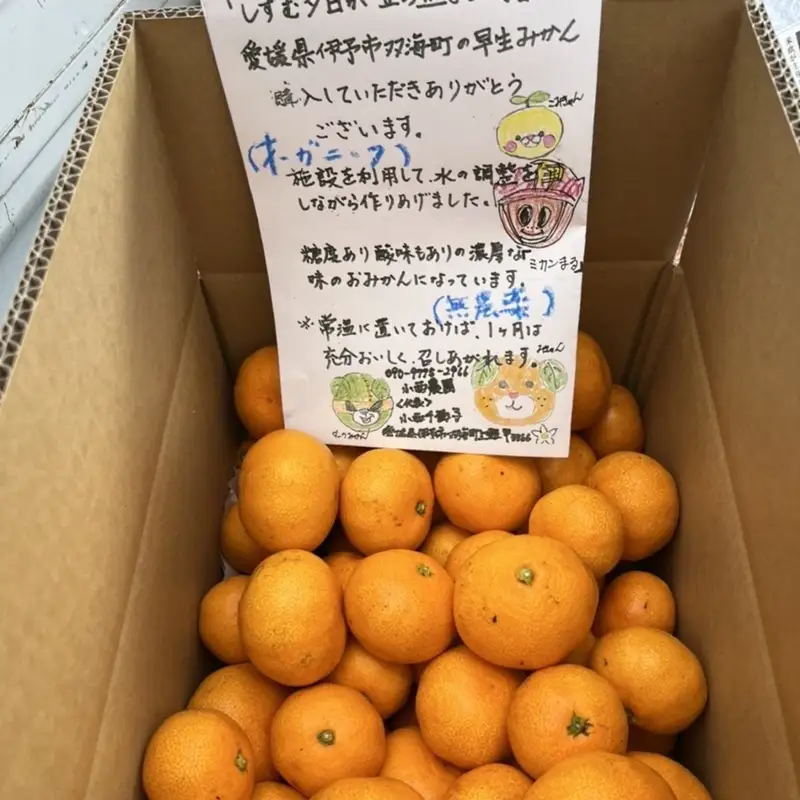 「しずむ夕日が
愛媛県伊予市双海町の早生みかん
購入していただきありがとう
こみきゃん
ございます。
(オーガニック)
施設を利用して、水の調整を
しながら作りあげました。
糖度あり酸味もありの濃厚な
ミカンまる
味のおみかんになっています。
(無農薬)
※常温に置いておけば、1ヶ月は
充分おいしく、召しあがれます。
みきゃん
小西農園
<代表>
愛媛県伊予市双海町上灘